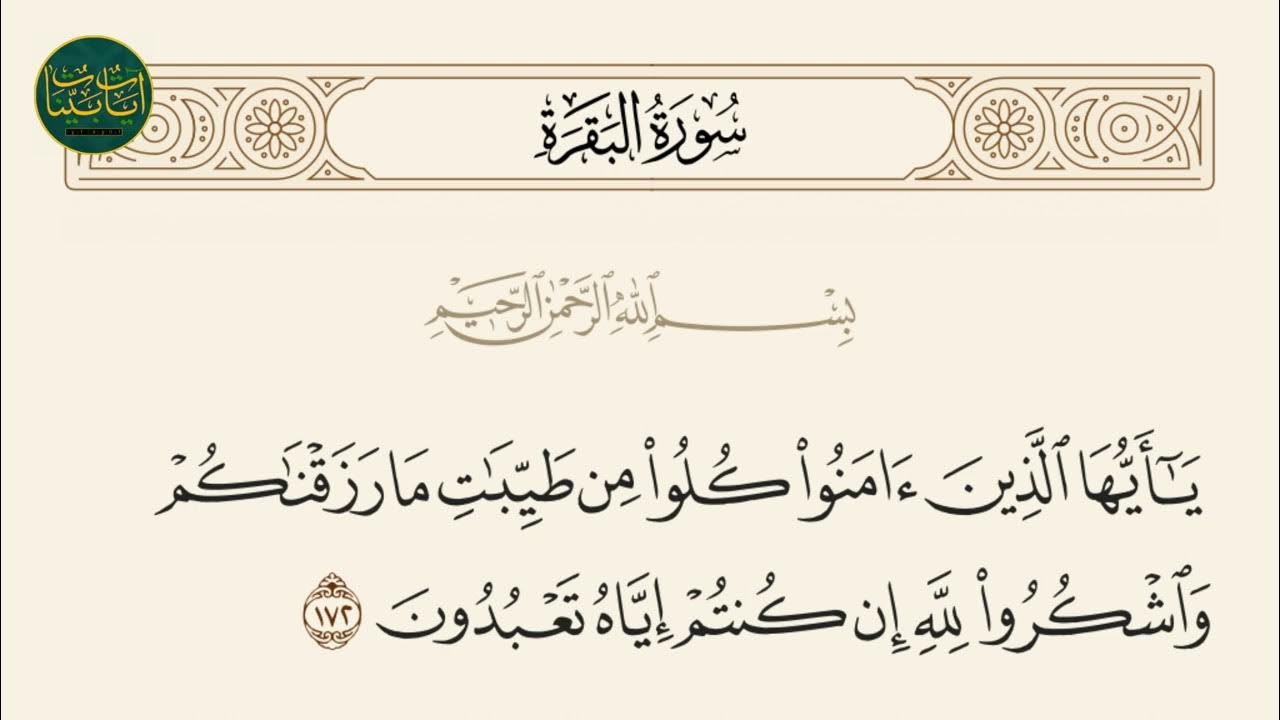 آيات بينات
سُورَةُ البَقَرَةِ
بِسْمِ ٱللَّهِ ٱلرَّحْمَٰنِ ٱلرَّحِيمِ
يَـٰٓأَيُّهَا ٱلَّذِينَ ءَامَنُوا۟ كُلُوا۟ مِن طَيِّبَـٰتِ مَا رَزَقْنَـٰكُمْ
وَٱشْكُرُوا۟ لِلَّهِ إِن كُنتُمْ إِيَّاهُ تَعْبُدُونَ ١٧٢